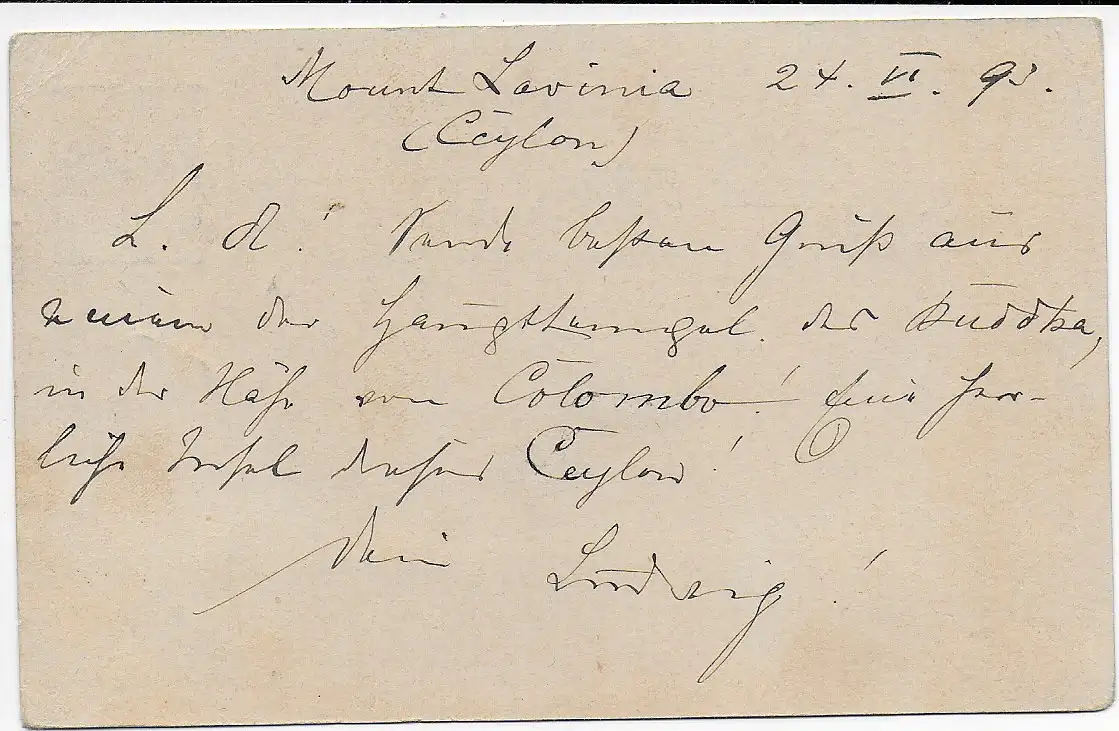 Mount Lavinia 24. VI. 93.
(Ceylon)
L. A! Sende besten Gruß aus
einem der Haupttempel des Buddha,
in der Nähe von Colombo! Eine herr-
liche Insel dieses Ceylon!
Dein Ludwig!